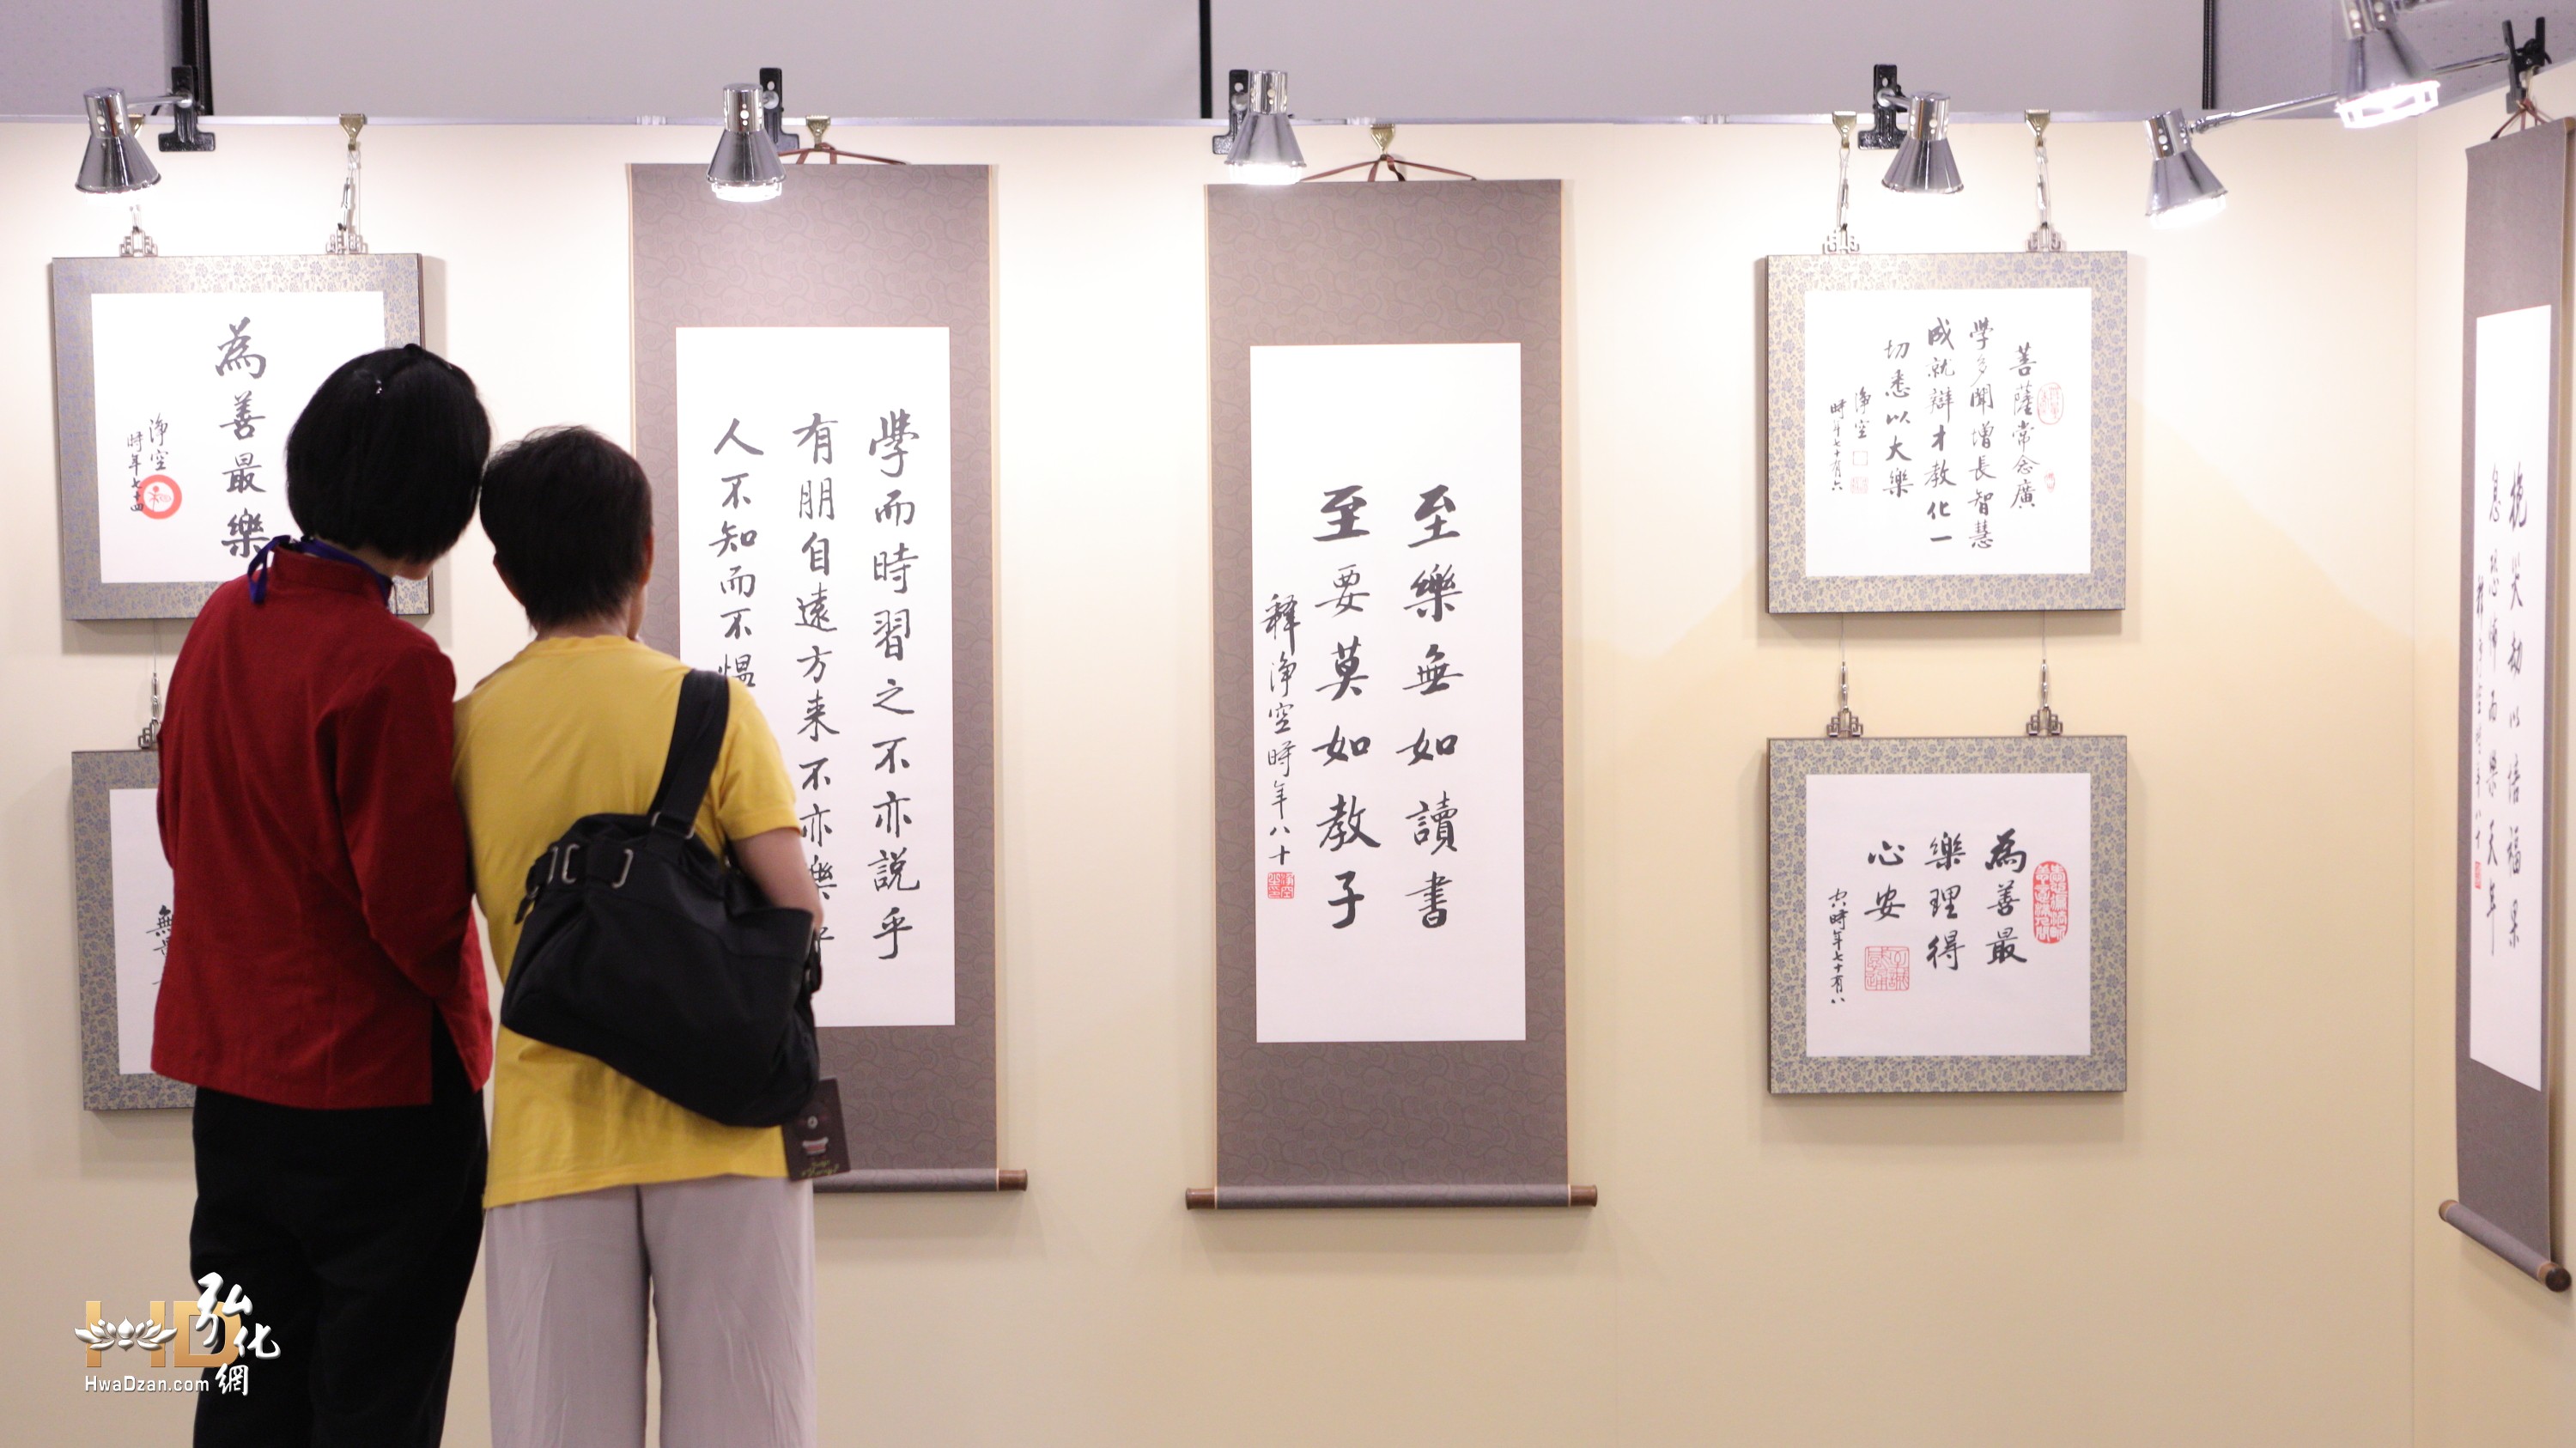 為善最樂
淨空
時年七十四
無
學而時習之不亦說乎
有朋自遠方来不亦樂乎
人不知而不慍
至樂無如讀書
至要莫如教子
釋淨空時年八十
菩薩常念廣
學多聞增長智慧
成就辯才教化一
切悉以大樂
淨空
時年七十有六
為善最
樂理得
心安
時年七十有八
挽災劫以培福果
樂天年
釋淨空時年八十
HD
弘化網
HwaDzan.com